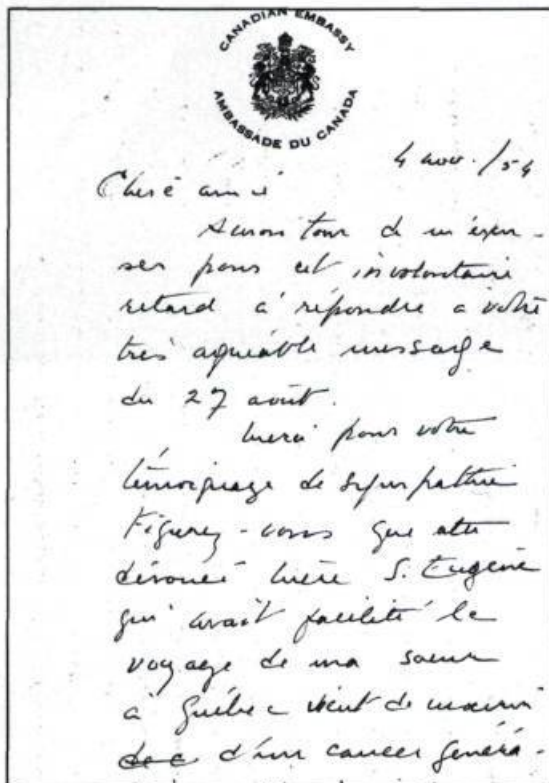 CANADIAN EMBASSY
AMBASSADE DU CANADA
4 nov. /54
Cher é ami é
tour de m'excu-
ser pour cet involontaire
retard à répondre à votre
très agréable message
du 27 août.
Merci pour votre
témoignage de sympathie
Figurez-vous que
dévouée Mère S. Eugène
qui avait facilité le
voyage de ma soeur
à Québec vient de mourir
d'un cancer généra-